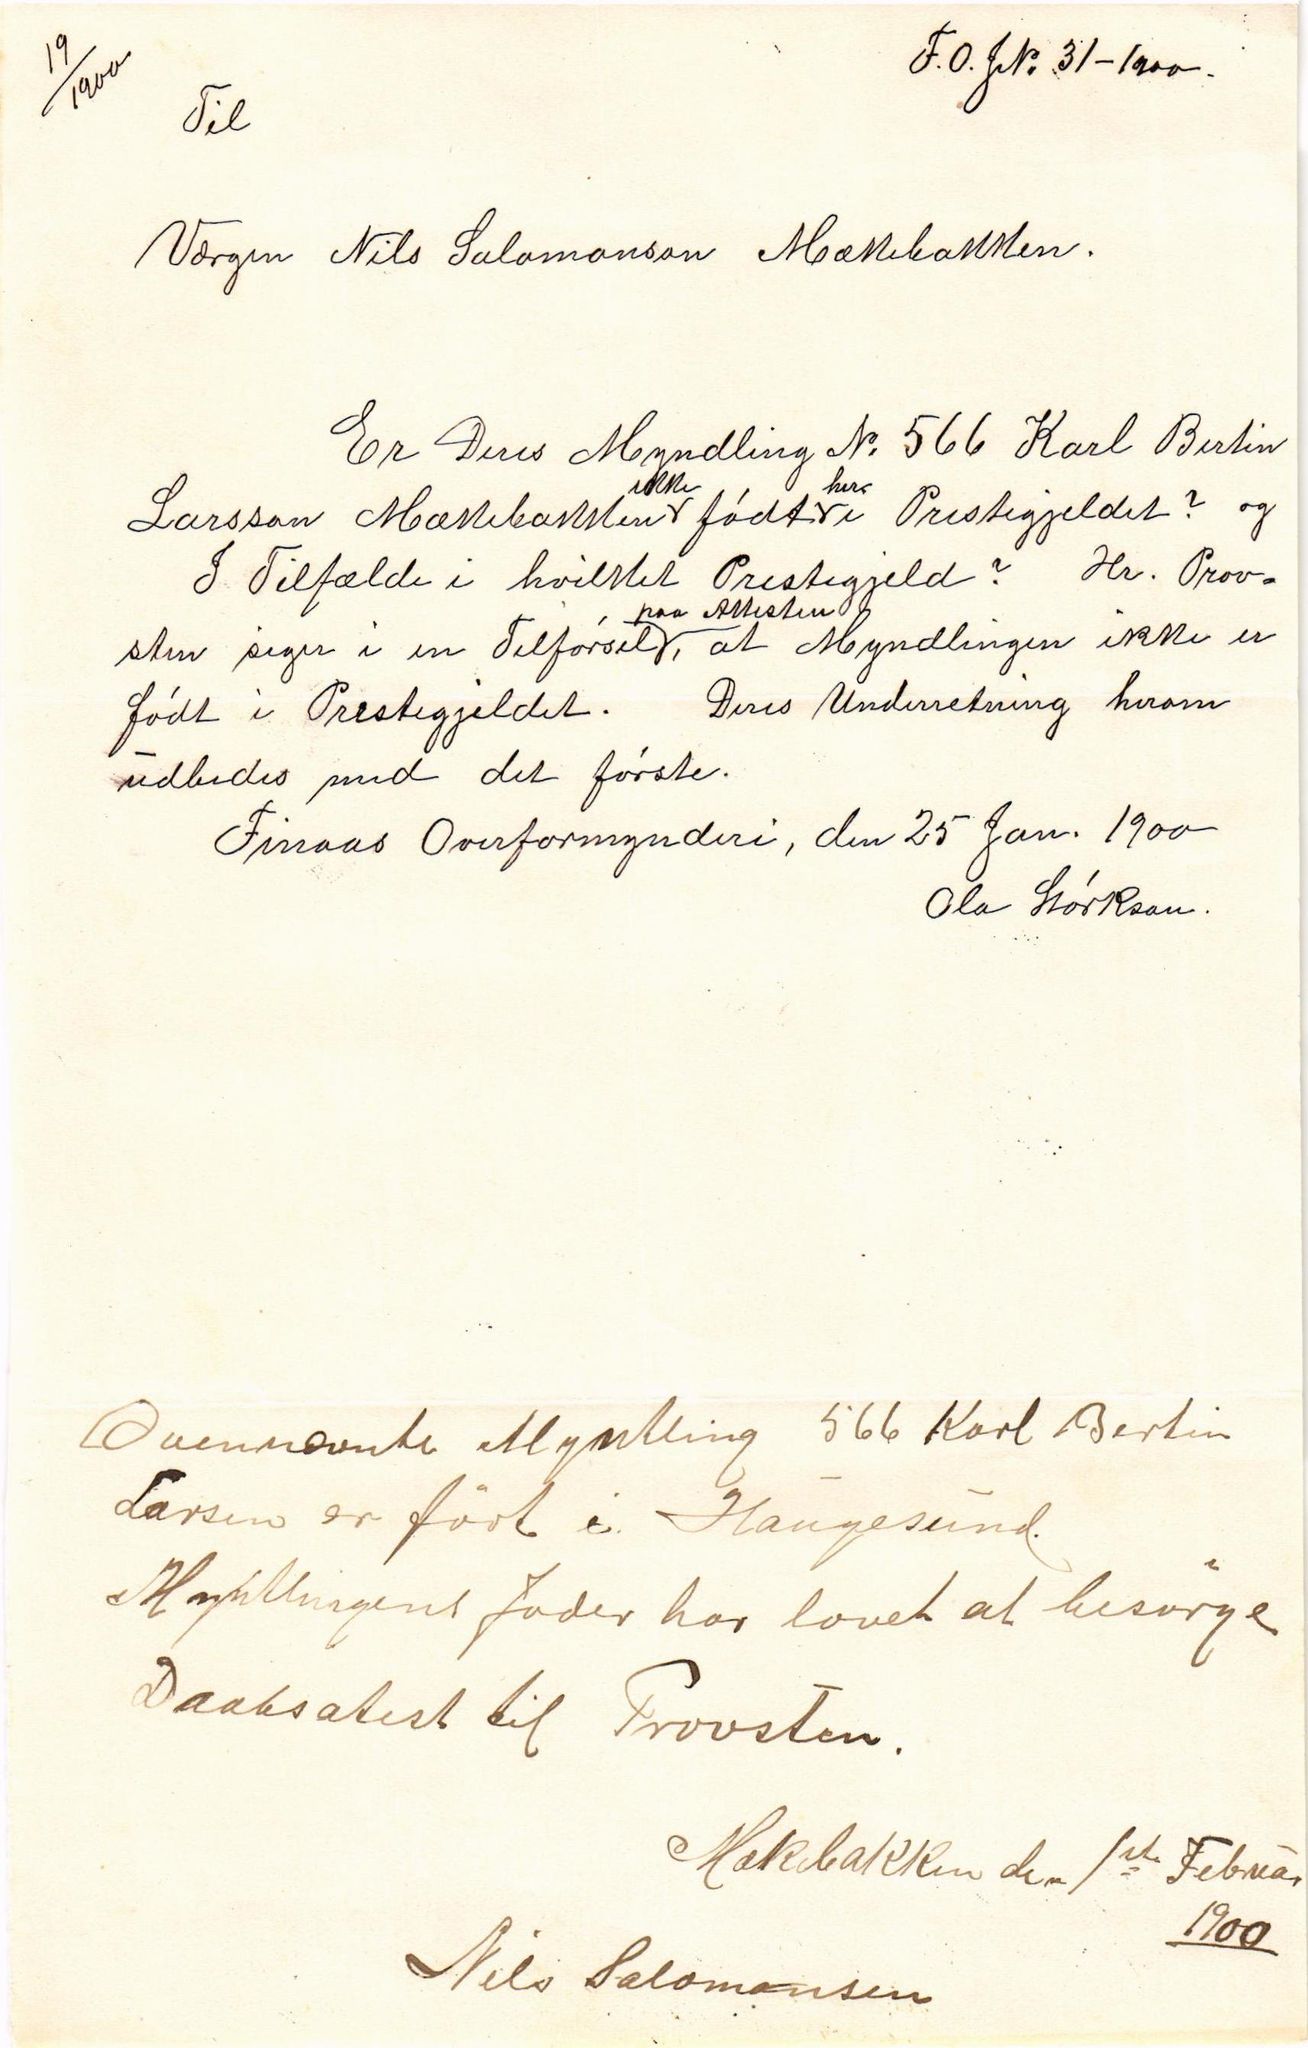 19/1900
F. O. J.No. 31-1900.
Til
Værgen Nils Salomonson Mækkebakken.
Er Deres Myndling No. 566 Karl Bertin
Larsson Mækkebakken ikke født her i Prestegjeldet? og
I Tilfælde i hvilket Prestegjeld? Hr. Prov-
sten siger i en Tilførsel paa Attesten, at Myndlingen ikke er
født i Prestegjeldet. Deres Underretning herom
udbedes med det første.
Finaas Overformynderi, den 25 Jan. 1900
Ola Størkson.
Ovennævnte Myntling 566 Karl Bertin
Larsen er fört i Haugesund.
Myntlingens fader har lovet at besörge
Daabsatest til Provsten.
Mækebakken den 1ste Februar
1900
Nils Salomonsen